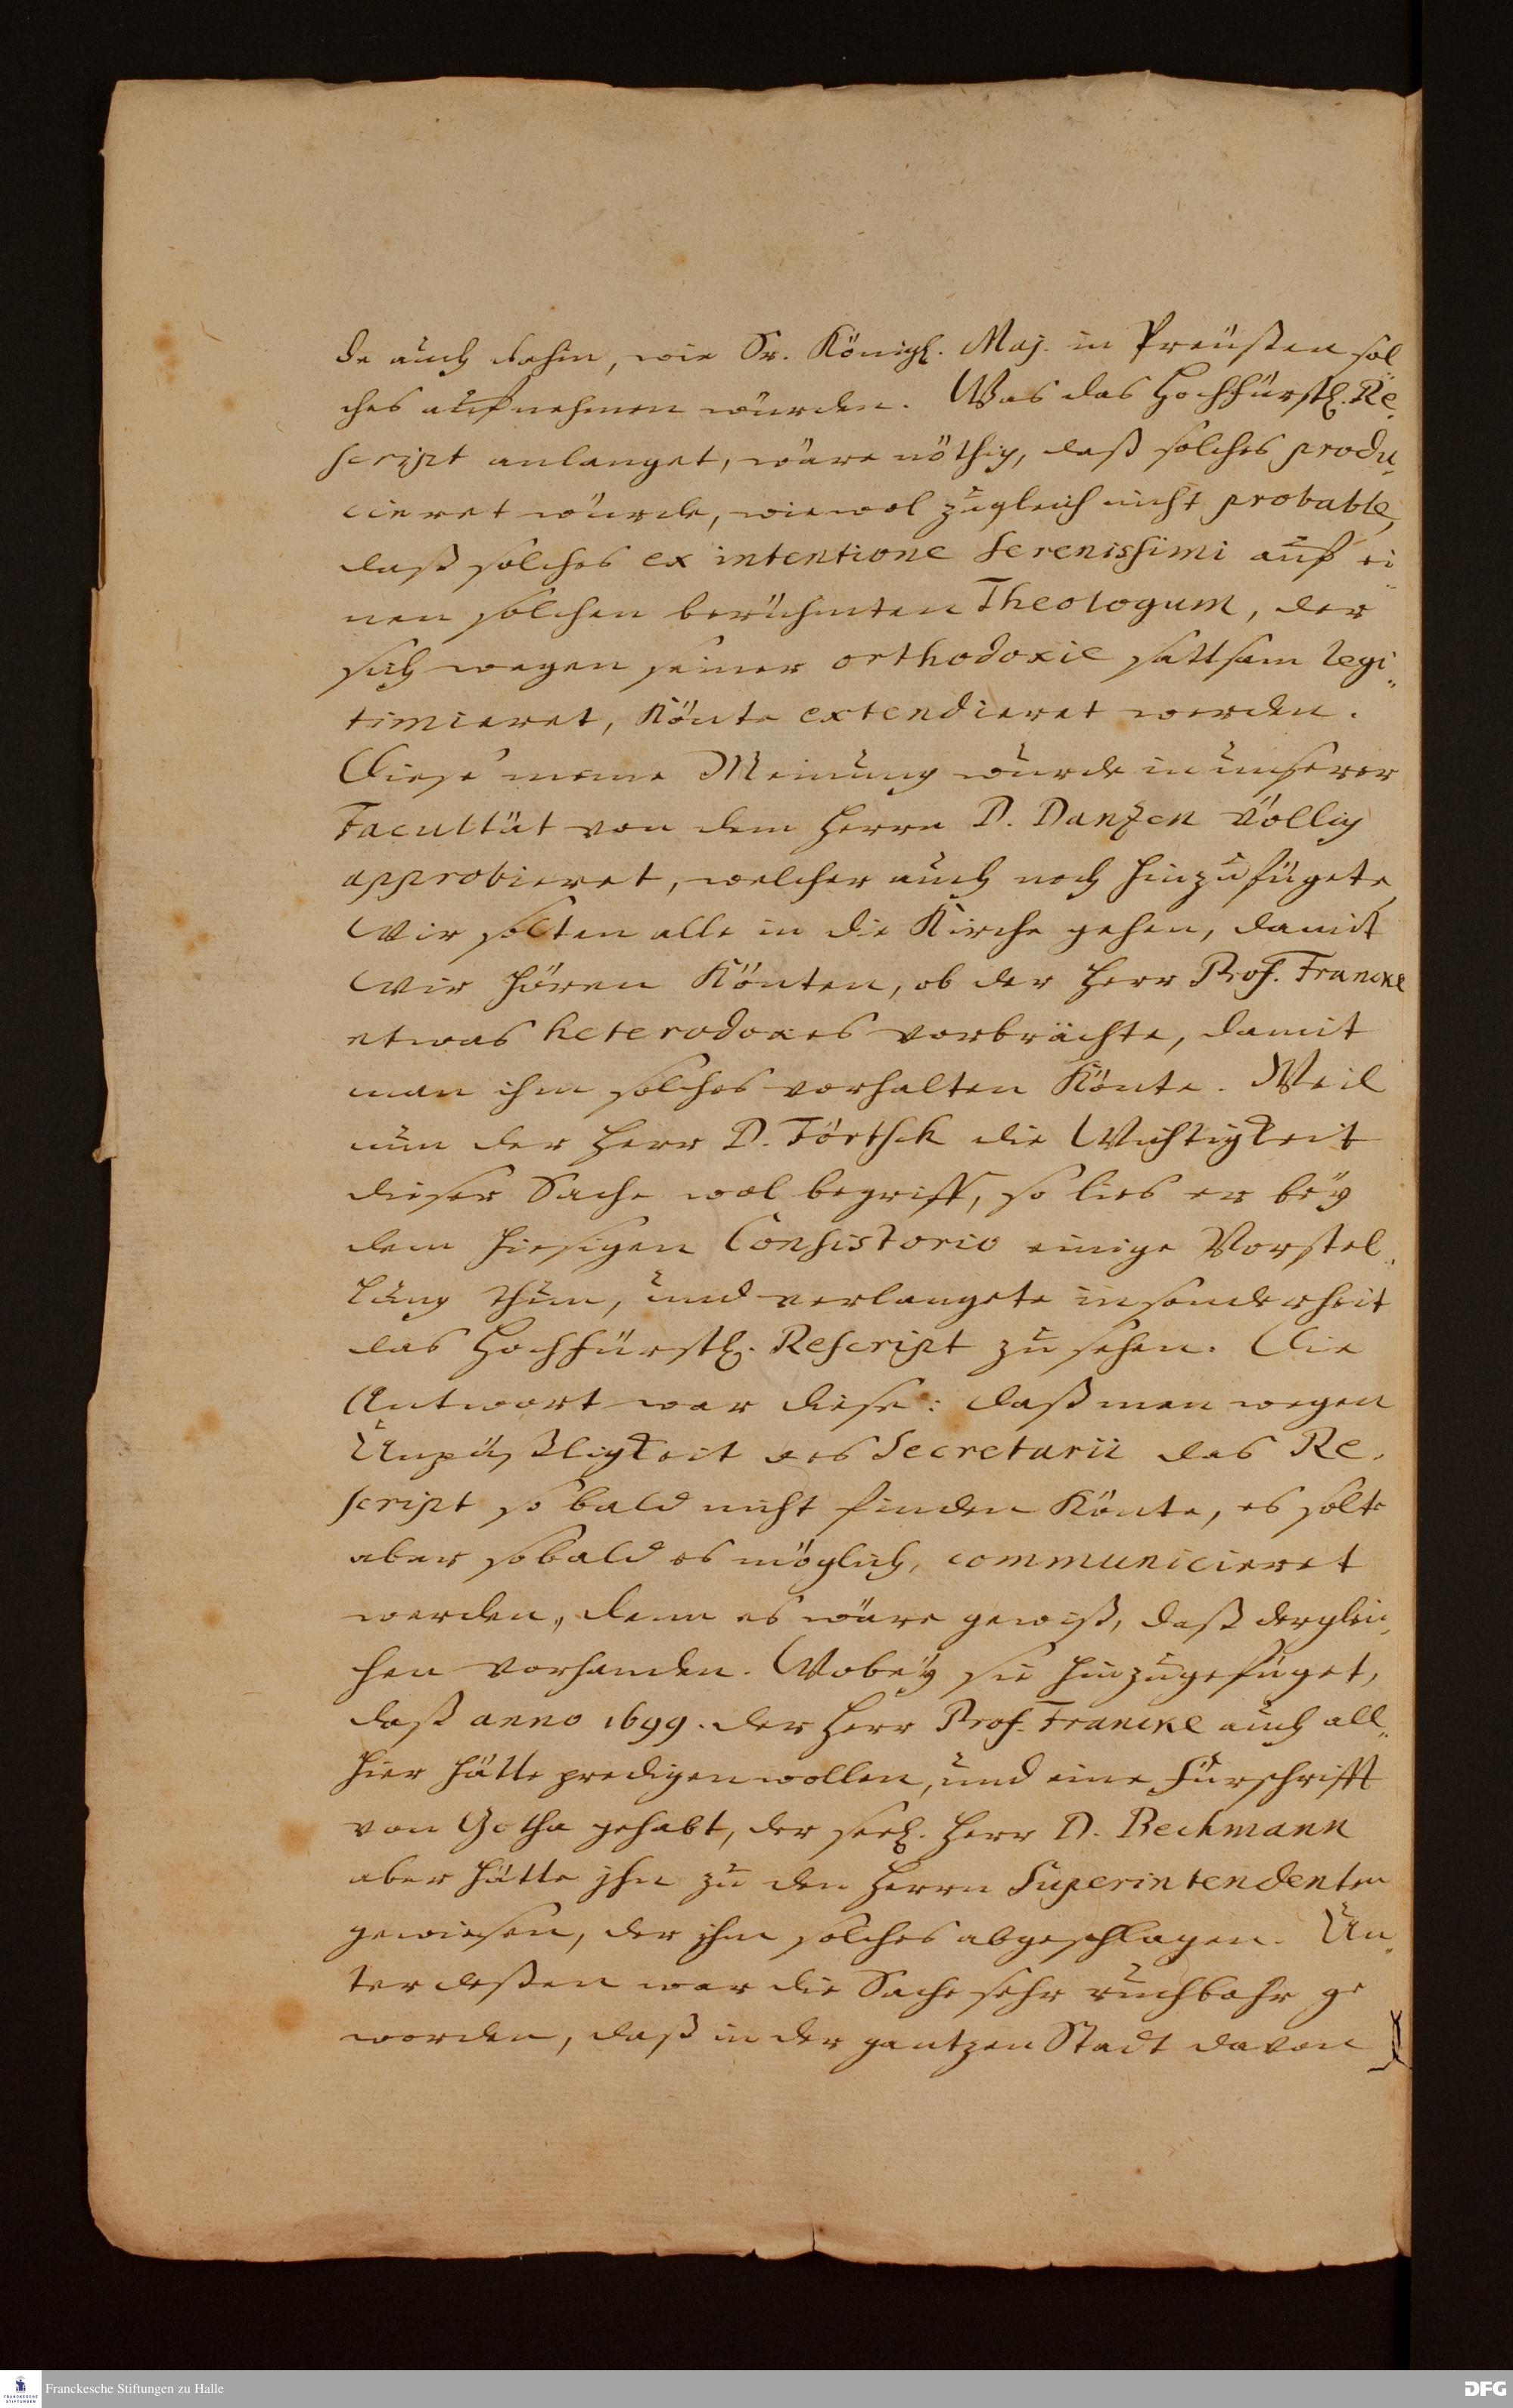 de auch dahin, wie Sr. Königl. Maj. in Preüßen sol
ches aufnehmen würden. Was das Hochfürstl. Re,
script anlanget, wäre nöthig, daß solches produ,,
cieret würde, wiewol zugleich nicht probable,
daß solches ex intentione Serenissimi auf ei
nen solchen berühmten Theologum, der
sich wegen seiner orthodoxie sattsam legi,,
timieret, könte extendieret werden.
Diese meine Meinung wurde in unserer
Facultät von dem Herrn D. Danzen völlig
approbieret, welcher auch noch hinzufügete,
Wir solten alle in die Kirche gehen, damit
Wir hören könten, ob der Herr Prof. Francke
etwas heterodoxes vorbrächte, damit
man ihm solches vorhalten könte. Weil
nun der Herr D. Förtsch die Wichtigkeit
dieser Sache wol begriff, so lies er beÿ
dem hiesigen Consistorio einige Vorstel,
lung thun, und verlangete insonderheit
das Hochfürstl. Rescript zu sehen. Die
Antwort war diese: daß man wegen
Unpäßligkeit des Secretarii das Re,
script so bald nicht finden könte, es solte
aber sobald es möglich, communicieret
werden, denn es wäre gewiß, daß derglei,
chen vorhanden. Wobeÿ sie hinzugefüget,
daß anno 1699. der Herr Prof. Francke auch all,,
hier hätte predigen wollen, und eine Fürschrifft
von Gotha gehabt, der seel. Herr D. Bechmann
aber hätte jhn zu den Herrn Superintendenten
gewiesen, der jhm solches abgeschlagen. Un,
terdeßen war die Sache sehr ruchbahr ge
worden, daß in der gantzen Stadt davon
Franckesche Stiftungen zu Halle
DFG